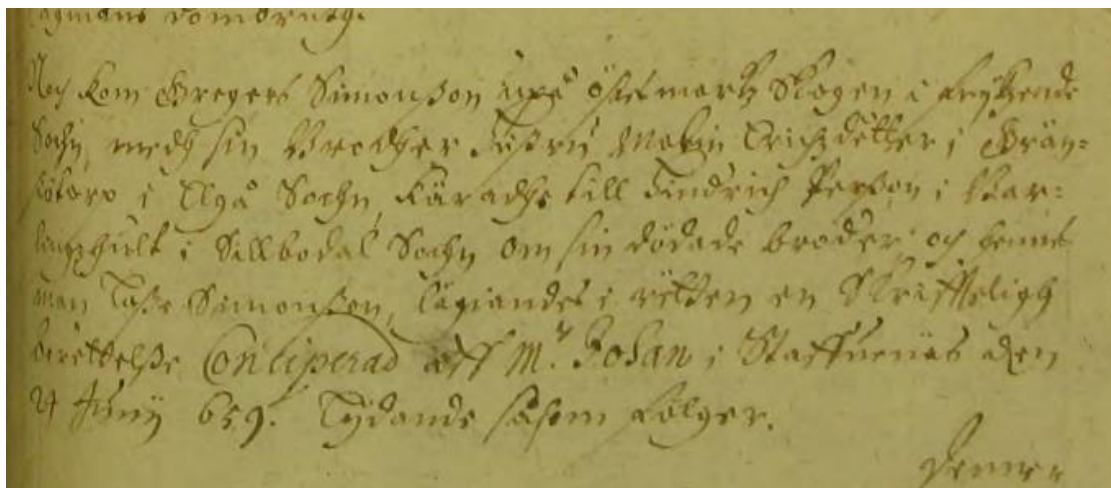 Lagmans dombrutz.
Noch kom Gregers Simonßon uppå Östmarkz Skogen i Frÿkende
Sochn, medh sin Brodher hußtru Mahin Erichzdotter i Grän-
siötorp i Elgå Sochn, kärandhe till Hindrich Perßon i Bar-
lingzhult i Sillbodal Sochn om sin dödade broder och hennes
man Laße Simonßon, läggiandes i rätten en Skriffteligh
berettelße Conciperad aff Mr. Johan i Staffuenäs den
24 Junÿ 659. Lÿdande såsom fölger.